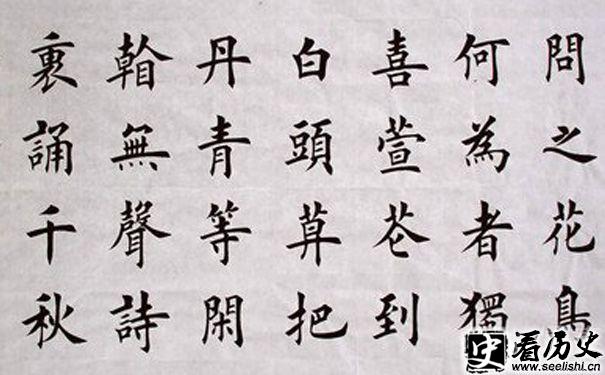 問之花鳥
何為者獨
喜萱花到
白頭莫把
丹青等閑
看無聲詩
裏誦千秋
看历史
www.seelishi.cn